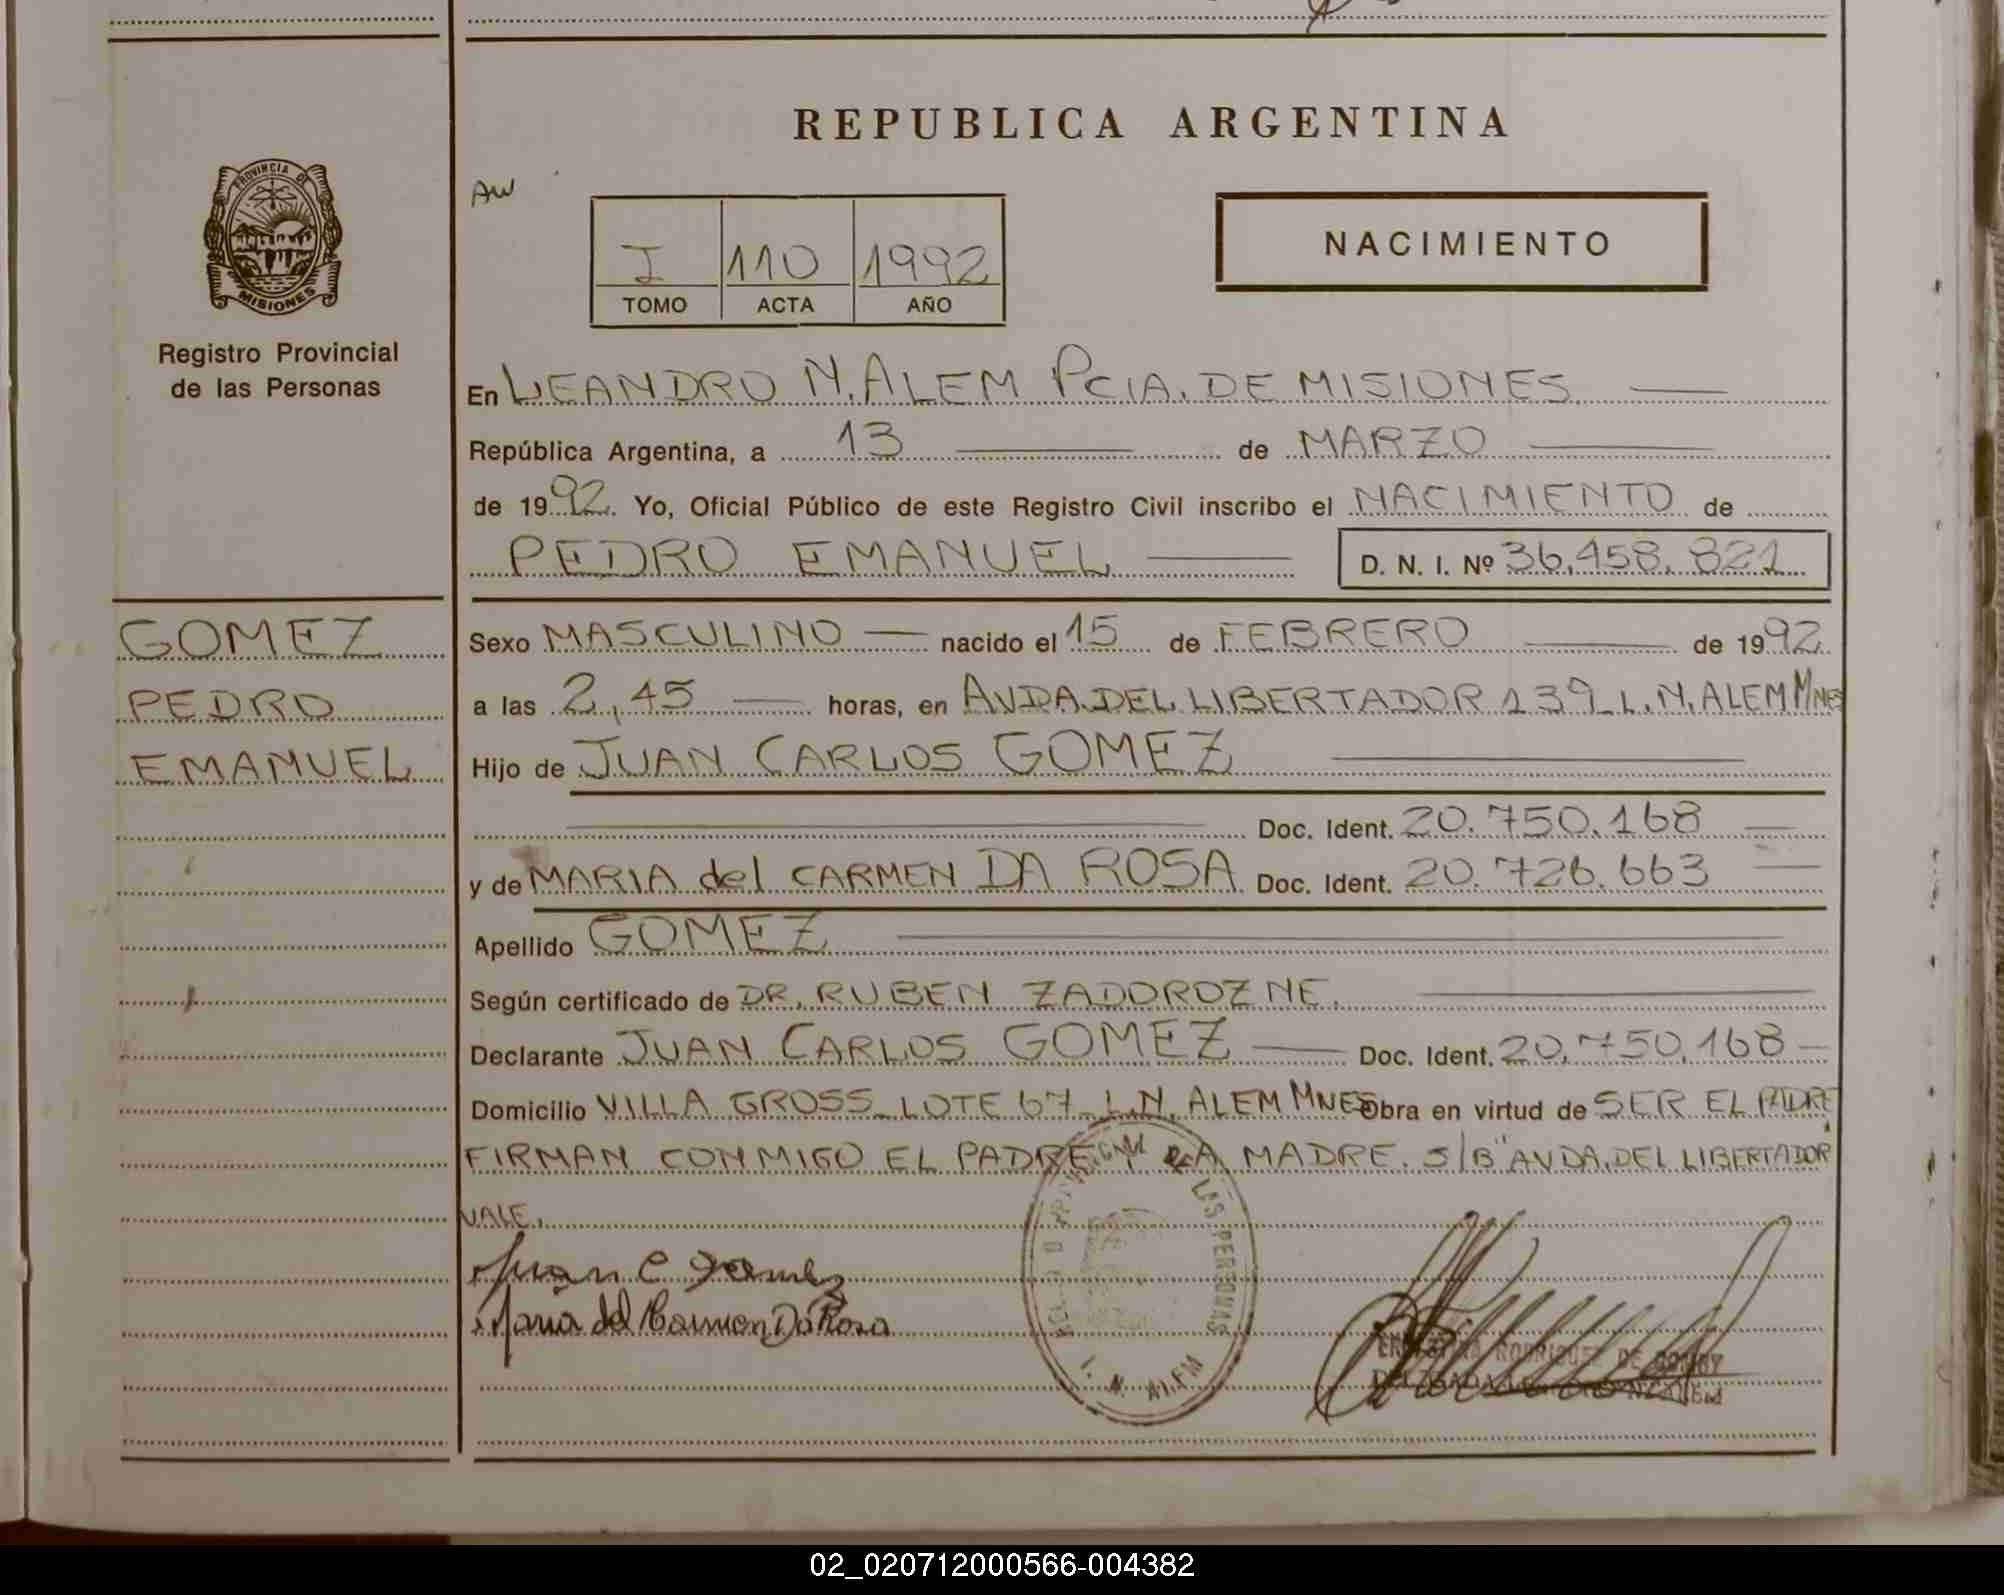 REPUBLICA ARGENTINA
AW
PROVINCIA DE
MISIONES
Registro Provincial
de las Personas
I 110 1992
TOMO ACTA AÑO
NACIMIENTO
En LEANDRO N. ALEM PCIA. DE MISIONES
República Argentina, a 13 de MARZO
de 1992. Yo, Oficial Público de este Registro Civil inscribo el NACIMIENTO de
PEDRO EMANUEL D. N. I. Nº 36.458.821
GOMEZ
PEDRO
EMANUEL
Sexo MASCULINO nacido el 15 de FEBRERO de 1992
a las 2,45 horas, en AVDA. DEL LIBERTADOR 139 L.N. ALEM MNES
Hijo de JUAN CARLOS GOMEZ
Doc. Ident. 20.750.168
y de MARIA del CARMEN DA ROSA Doc. Ident. 20.726.663
Apellido GOMEZ
Según certificado de DR. RUBEN ZADOROZNE.
Declarante JUAN CARLOS GOMEZ Doc. Ident. 20.750.168
Domicilio VILLA GROSS LOTE 67 L.N. ALEM MNES Obra en virtud de SER EL PADRE
FIRMAN CONMIGO EL PADRE Y LA MADRE. S/B" AVDA. DEL LIBERTADOR
VALE.
Juan C Gomez
Maria del Carmen Da Rosa
DE LAS PERSONAS
L. N. ALEM
RODRIGUEZ DE
02_020712000566-004382